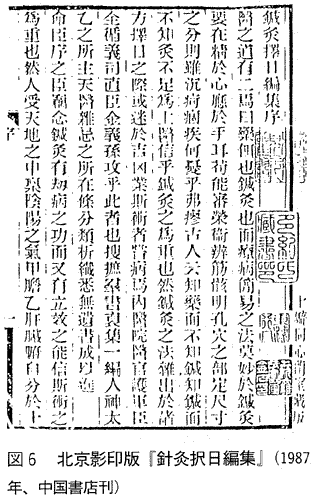 十瓣同心蘭室藏
鍼灸擇日編集序
醫之道有二焉曰藥餌也鍼灸也而療病簡易之法莫妙於鍼灸
要在精於心應於手耳苟能審榮衛辨筋骸明孔穴之部定尺寸
之分則雖沉痾痼疾何憂乎弗瘳古人云知藥而不知鍼知鍼而
不知灸不足為上醫信乎鍼灸之為重也然鍼灸之法雜出於諸
方擇日之際或迷於吉凶業斯術者嘗病焉內醫院醫官護軍臣
全循義司直臣金義孫攻乎此者也搜摭羣書裒集一編人神太
乙之所主天醫雜忌之所在條分類析纖悉無遺書成以進
命臣序之臣竊念鍼灸有劫病之功而又有立效之能信斯術之
為重也然人受天地之中稟陰陽之氣甲膽乙肝臟腑自分於十
序
一
図6 北京影印版『針灸択日編集』(1987
年、中国書店刊)